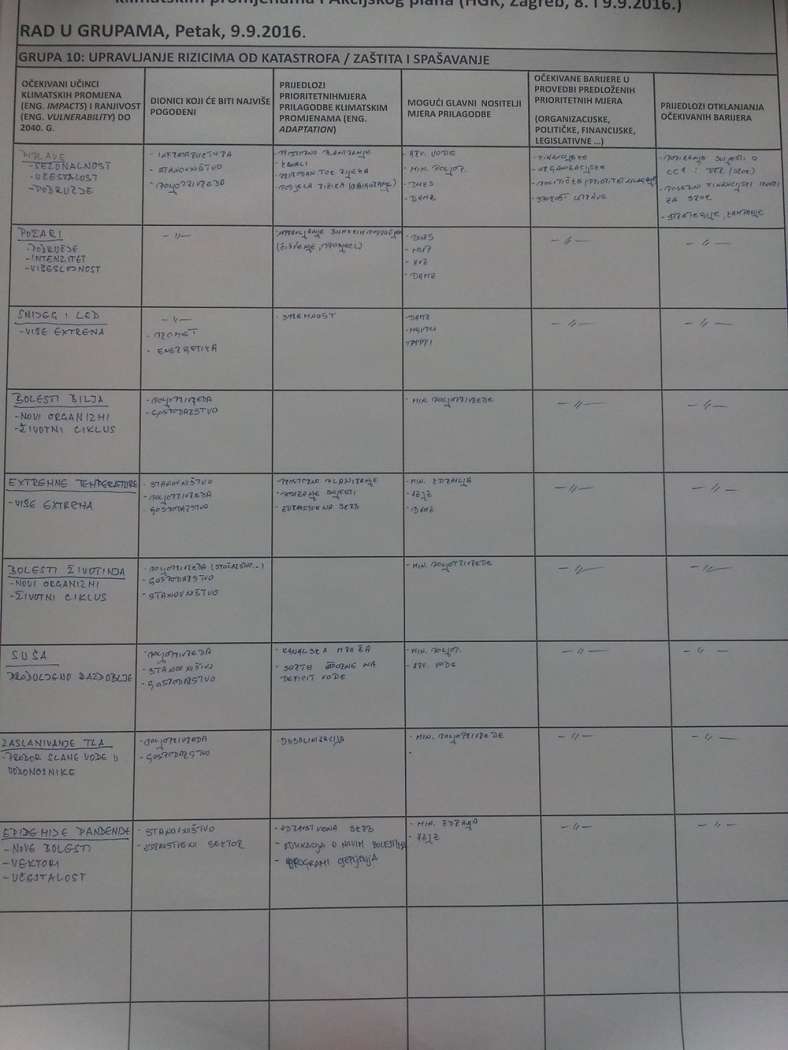 klimatskim promjenama i Akcijskog plana (HGK, Zagreb, 8. i 9.9.2016.)
RAD U GRUPAMA, Petak, 9.9.2016.
GRUPA 10: UPRAVLJANJE RIZICIMA OD KATASTROFA / ZAŠTITA I SPAŠAVANJE
OČEKIVANI UČINCI
KLIMATSKIH PROMJENA
(ENG. IMPACTS) I RANJIVOST
(ENG. VULNERABILITY) DO
2040. G.
DIONICI KOJI ĆE BITI NAJVIŠE
POGOĐENI
PRIJEDLOZI
PRIORITETNIHMJERA
PRILAGODBE KLIMATSKIM
PROMJENAMA (ENG.
ADAPTATION)
MOGUĆI GLAVNI NOSITELJI
MJERA PRILAGODBE
OČEKIVANE BARIJERE U
PROVEDBI PREDLOŽENIH
PRIORITETNIH MJERA
(ORGANIZACIJSKE,
POLITIČKE, FINANCIJSKE,
LEGISLATIVNE ...)
PRIJEDLOZI OTKLANJANJA
OČEKIVANIH BARIJERA
POPLAVE
- SEZONALNOST
- UČESTALOST
- PODRUČJE
- INFRASTRUKTURA
- STANOVNIŠTVO
- POLJOPRIVREDA
- PROSTORNO PLANIRANJE
- KANALI
- PODJELA RIZIKA (OSIGURANJE)
- HRV. VODE
- MIN. POLJOP.
- DUZS
- DHMZ
- FINANCIJSKE
- ORGANIZACIJSKE
POŽARI
- PODRUČJE
- INTENZITET
- VIŠESLOJNOST
- " -
(ČIŠĆENJE, PROSJECI)
- DUZS
- DHMZ
- " -
- " -
SNIJEG I LED
- VIŠE EXTREMA
- " -
- PROMET
- ENERGETIKA
- SPREMNOST
- DHMZ
- " -
- " -
BOLESTI BILJA
- NOVI ORGANIZMI
- ŽIVOTNI CIKLUS
- POLJOPRIVREDA
- GOSPODARSTVO
- MIN. POLJOPRIVREDE
- " -
- " -
EXTREMNE TEMPERATURE
- VIŠE EXTREMA
- STANOVNIŠTVO
- POLJOPRIVREDA
- GOSPODARSTVO
- PROSTORNO PLANIRANJE
- PODIZANJE SVIJESTI
- MIN. ZDRAVLJA
- HZJZ
- DHMZ
- " -
- " -
BOLESTI ŽIVOTINJA
- NOVI ORGANIZMI
- ŽIVOTNI CIKLUS
- POLJOPRIVREDA (STOČARSTVO...)
- GOSPODARSTVO
- STANOVNIŠTVO
- MIN. POLJOPRIVREDE
- " -
- " -
SUŠA
PRODULJENO RAZDOBLJE
- POLJOPRIVREDA
- STANOVNIŠTVO
- GOSPODARSTVO
- KANALSKA MREŽA
- SORTE OTPORNE NA
DEFICIT VODE
- MIN. POLJOP.
- HRV. VODE
- " -
- " -
ZASLANJIVANJE TLA
- PRODOR SLANE VODE U
VODONOSNIKE
- POLJOPRIVREDA
- GOSPODARSTVO
- DESALINIZACIJA
- MIN. POLJOPRIVREDE
- " -
- " -
EPIDEMIJE PANDEMIJE
- NOVE BOLESTI
- VEKTORI
- UČESTALOST
- STANOVNIŠTVO
- ZDRAVSTVENI SEKTOR
- EDUKACIJA O NOVIM BOLESTIMA
- PROGRAMI CIJEPLJENJA
- MIN. ZDRAVLJA
- HZJZ
- " -
- " -